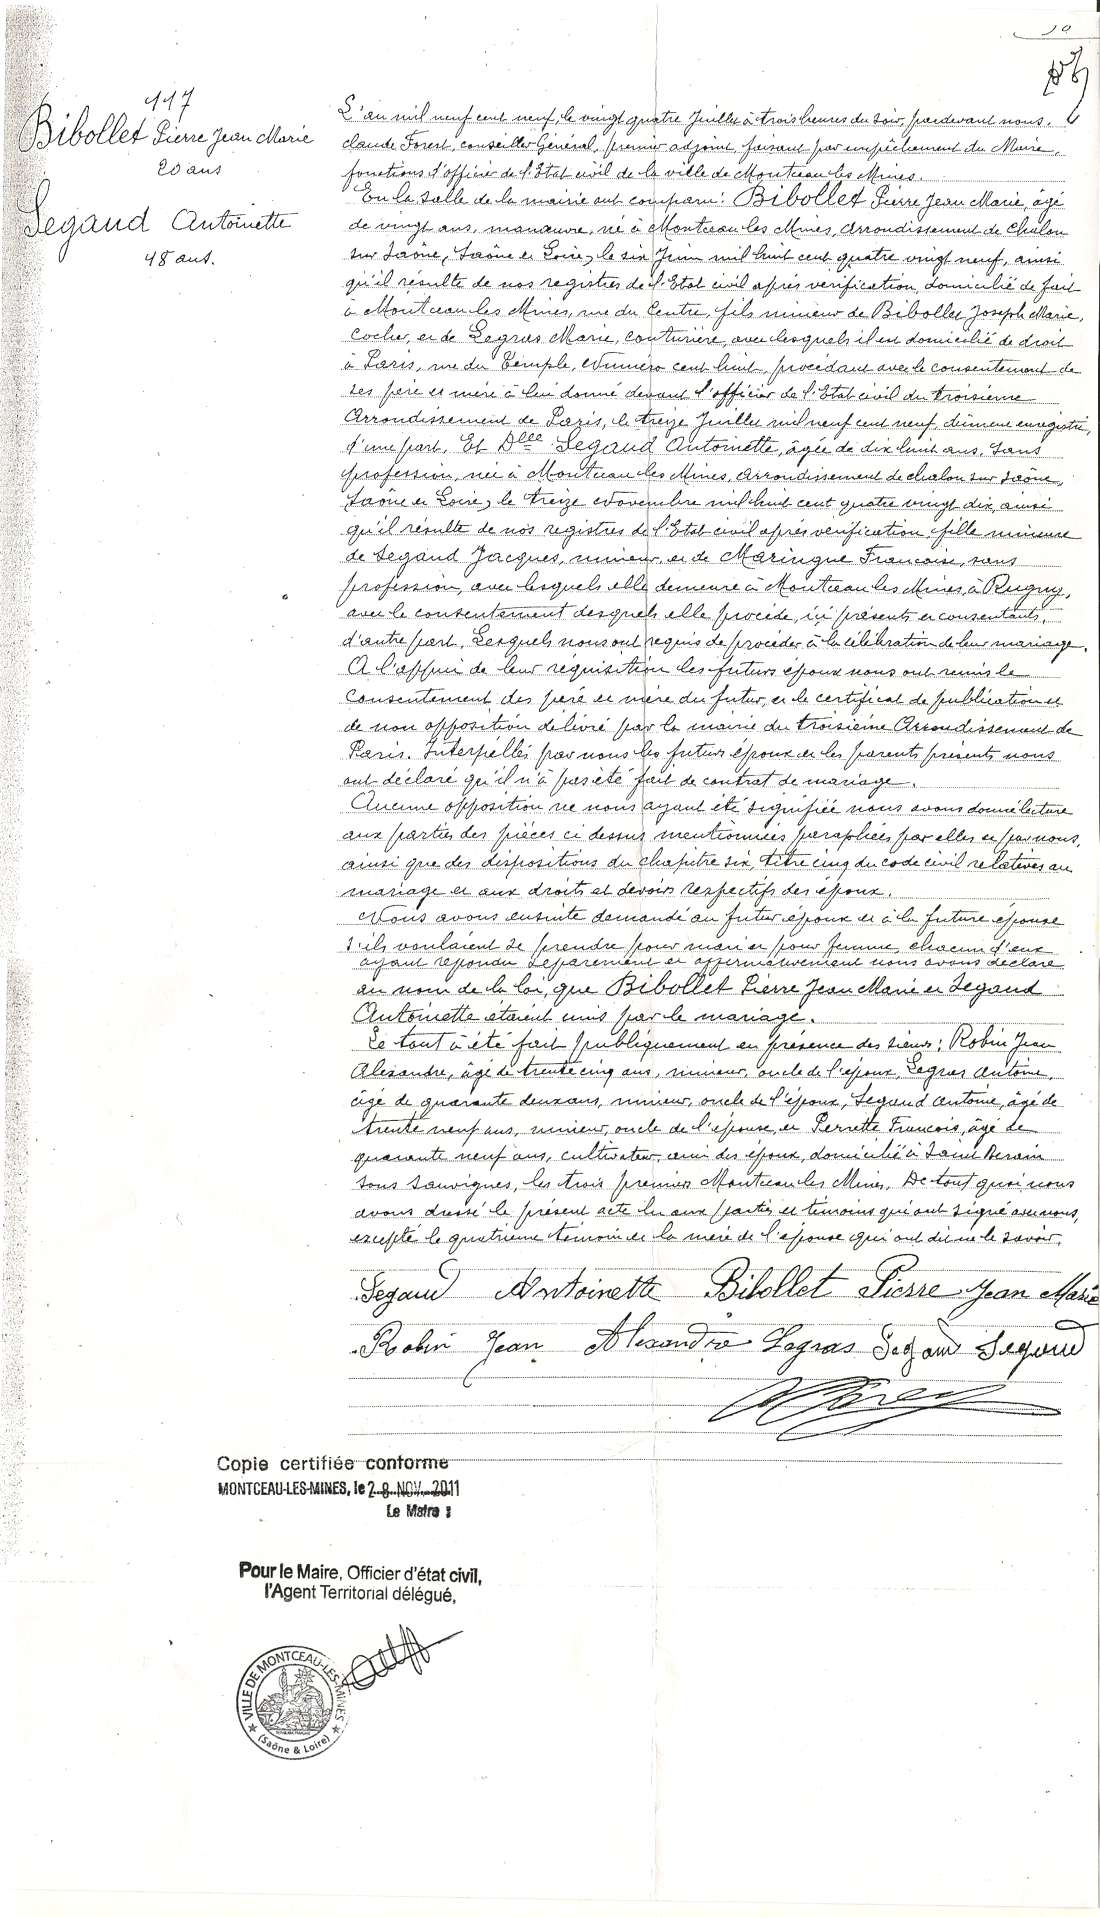 117
Bibollet Pierre Jean Marie
20 ans
Segaud Antoinette
18 ans.
L'an mil neuf cent neuf, le vingt quatre Juillet à trois heures du soir, pardevant nous,
claude Forest, conseiller Général, premier adjoint, faisant par empêchement du Maire,
fonctions d'officier de l'Etat civil de la ville de Montceau les Mines.
En la salle de la mairie ont comparu: Bibollet Pierre Jean Marie, âgé
de vingt ans, manœuvre, né à Montceau les Mines, Arrondissement de Chalon
sur Saône, Saône et Loire, le six Juin mil huit cent quatre vingt neuf, ainsi
qu'il résulte de nos registres de l'Etat civil après vérification, domicilié de fait
à Montceau les Mines, rue du Centre, fils mineur de Bibollet Joseph Marie,
Cocher, et de Legras Marie, couturière, avec lesquels il est domicilié de droit
à Paris, rue du Temple, Numéro cent huit, procédant avec le consentement de
ses père et mère à lui donné devant l'officier de l'Etat civil du troisième
Arrondissement de Paris, le treize Juillet mil neuf cent neuf, dûment enregistré,
d'une part. Et Dlle Segaud Antoinette, âgée de dix huit ans, sans
profession, née à Montceau les Mines, Arrondissement de chalon sur Saône,
Saône et Loire, le treize Novembre mil huit cent quatre vingt dix, ainsi
qu'il résulte de nos registres de l'Etat civil après vérification, fille mineure
de Segaud Jacques, mineur, et de Maringue Francoise, sans
profession, avec lesquels elle demeure à Montceau les Mines, à Rugny,
avec le consentement desquels elle procède, ici présents et consentants,
d'autre part. Lesquels nous ont requis de procéder à la célébration de leur mariage.
A l'appui de leur réquisition les futurs époux nous ont remis le
consentement des père et mère du futur, et le certificat de publication et
de non opposition délivré par la mairie du troisième Arrondissement de
Paris. Interpellés par nous les futurs époux et les parents présents nous
ont déclaré qu'il n'à pas été fait de contrat de mariage.
Aucune opposition ne nous ayant été signifiée nous avons donné lecture
aux parties des pièces ci dessus mentionnées paraphées par elles et par nous,
ainsi que des dispositions du chapitre six, titre cinq du code civil relatives au
mariage et aux droits et devoirs respectifs des époux.
Nous avons ensuite demandé au futur époux et à la future épouse
s'ils voulaient se prendre pour mari et pour femme, chacun d'eux
ayant répondu séparément et affirmativement nous avons déclaré
au nom de la loi, que Bibollet Pierre Jean Marie et Segaud
Antoinette étaient unis par le mariage.
Le tout à été fait publiquement en présence des sieurs: Robin Jean
Alexandre, âgé de trente cinq ans, mineur, oncle de l'époux, Legras Antoine,
âgé de quarante deux ans, mineur, oncle de l'époux, Segaud Antoine, âgé de
trente neuf ans, mineur, oncle de l'épouse, et Perrette Francois, âgé de
quarante neuf ans, cultivateur, ami des époux, domicilié à Saint Berain
sous Sanvignes, les trois premiers Montceau les Mines. De tout quoi nous
avons dressé le présent acte lu aux parties et témoins qui ont signé avec nous,
excepté le quatrième témoin et la mère de l'épouse qui ont dit ne le savoir.
Segaud Antoinette Bibollet Pierre Jean Marie
Robin Jean Alexandre Legras Segaud Segaud
Copie certifiée conforme
MONTCEAU-LES-MINES, le 28 NOV. 2011
Le Maire :
Pour le Maire, Officier d'état civil,
l'Agent Territorial délégué,
VILLE DE MONTCEAU-LES-MINES
(Saône & Loire)